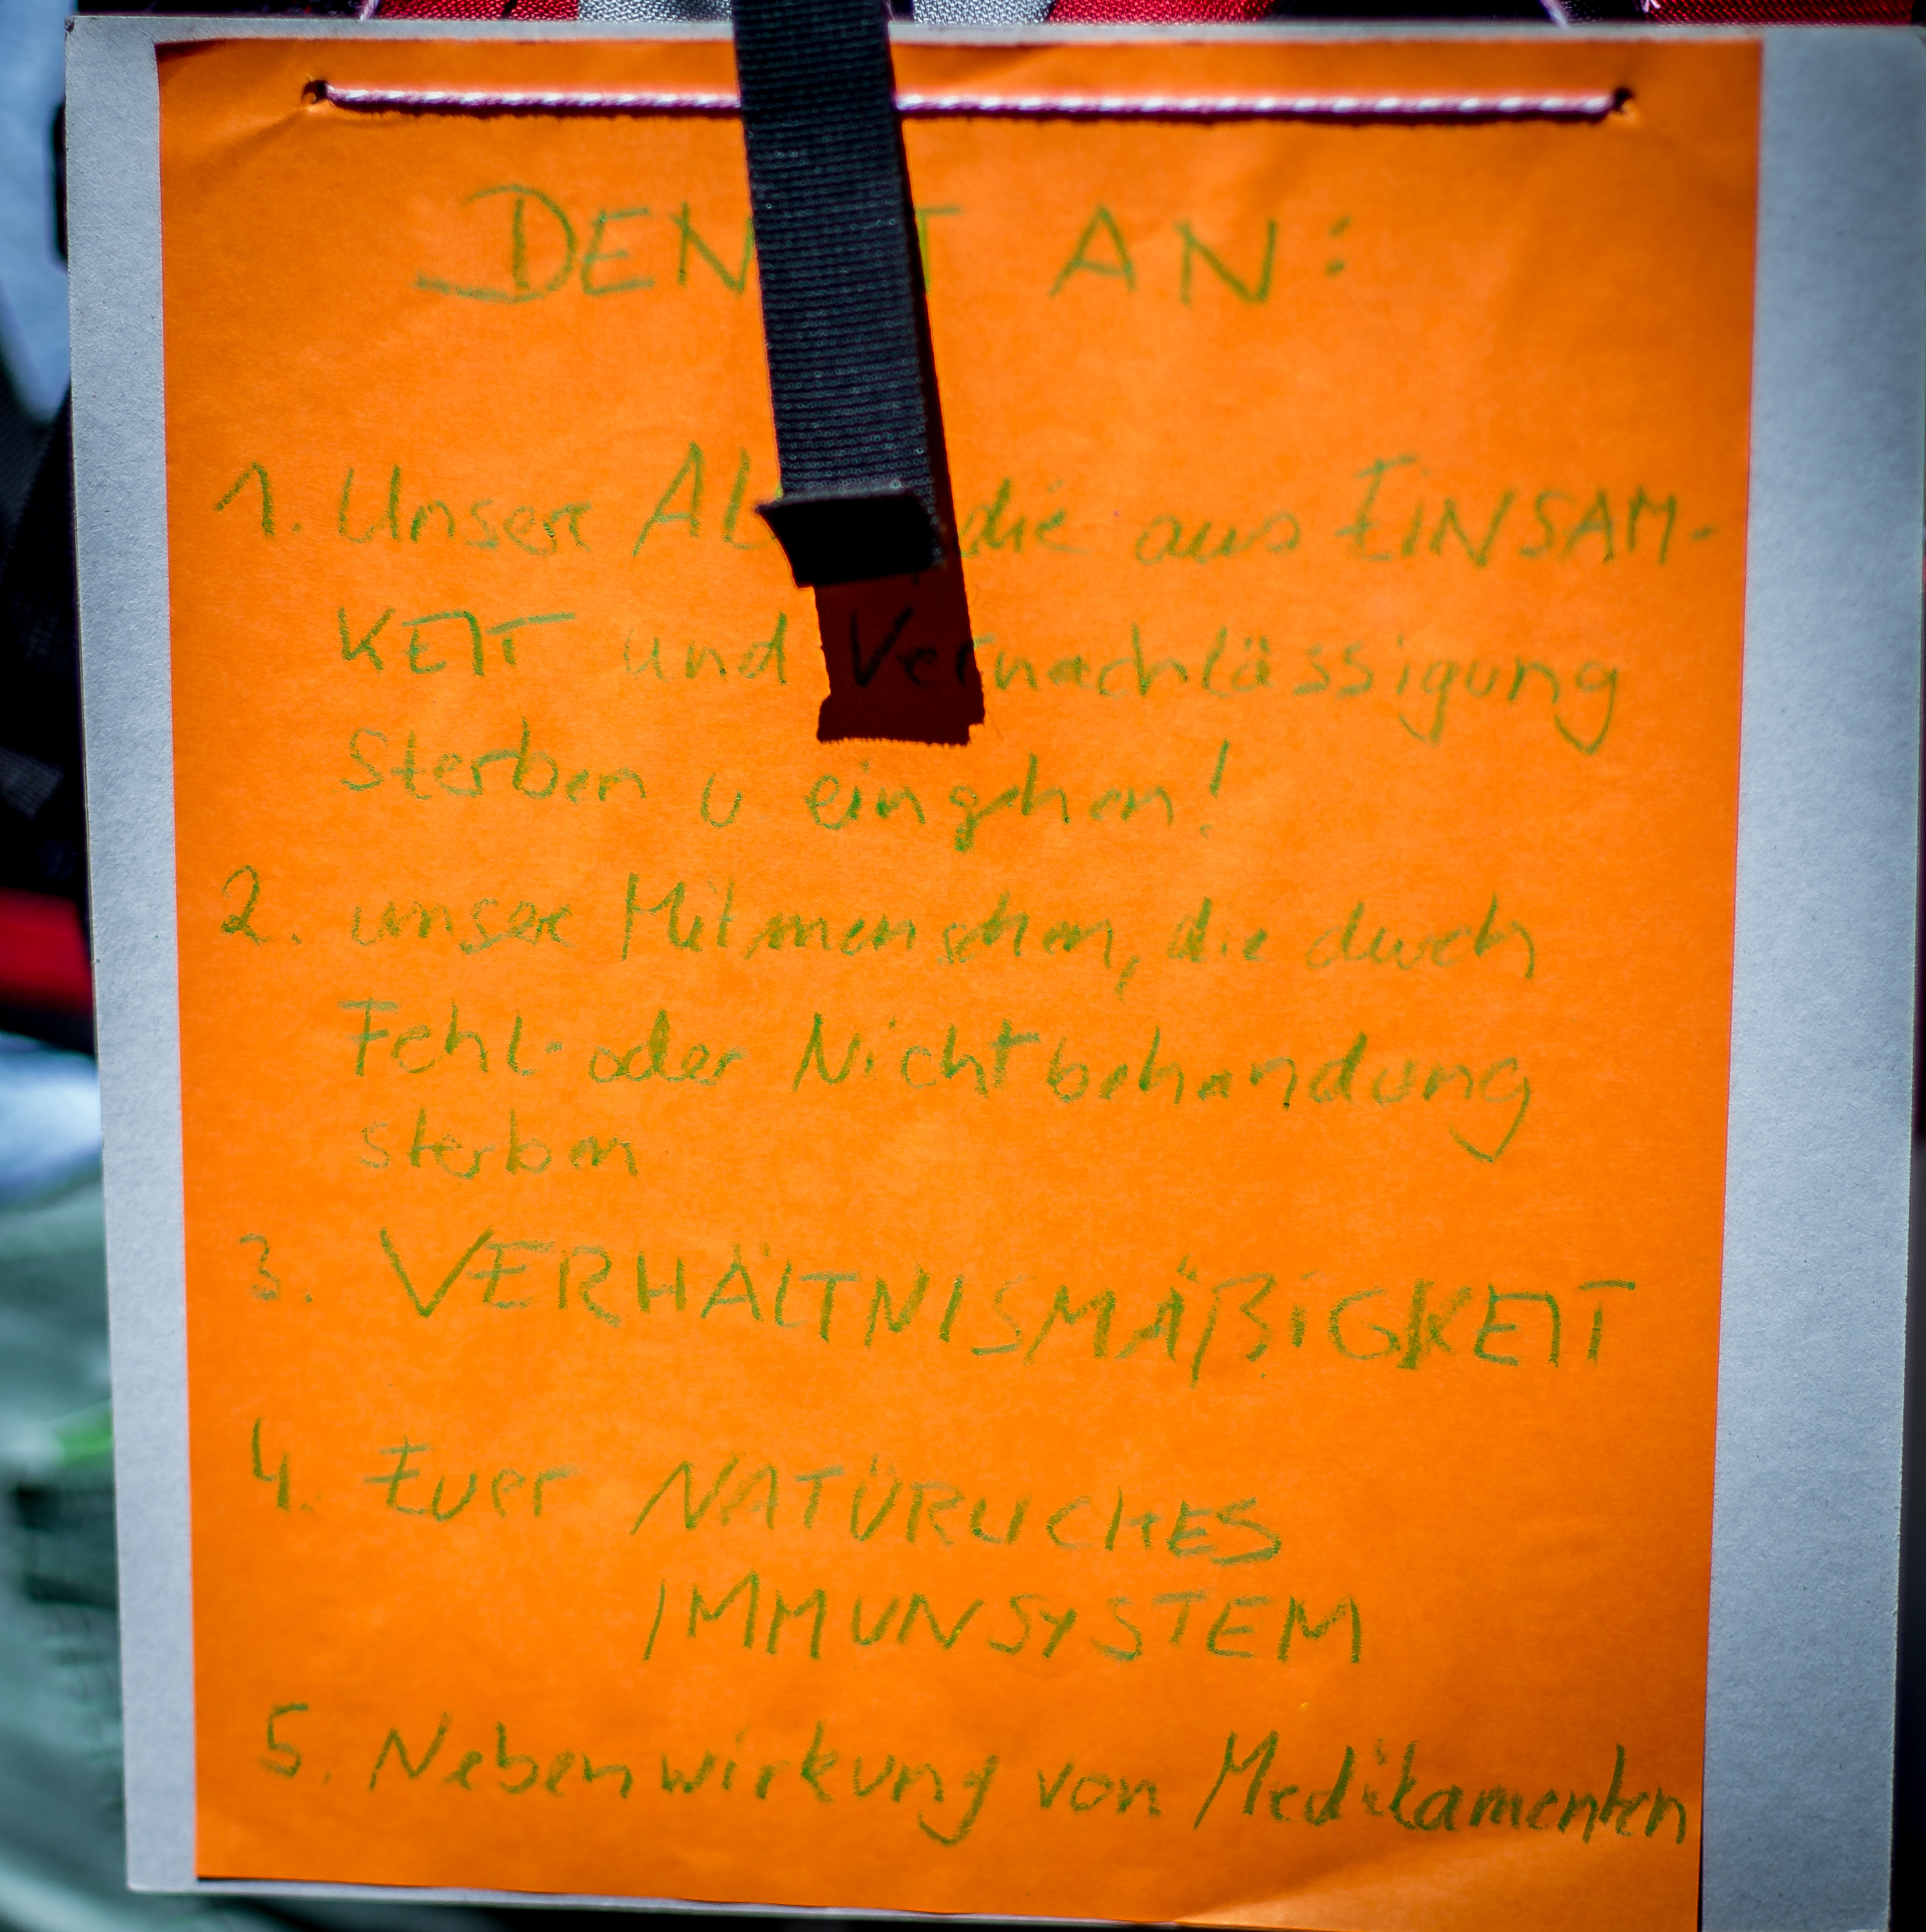 DEN T AN:
1. Unsere AL die aus EINSAM-
KEIT und Vernachlässigung
Sterben u eingehen!
2. unsere Mitmenschen, die durch
Fehl- oder Nichtbehandung
sterben
3. VERHÄLTNISMÄßIGKEIT
4. Euer NATÜRLICHES
IMMUNSYSTEM
5. Nebenwirkung von Medikamenten